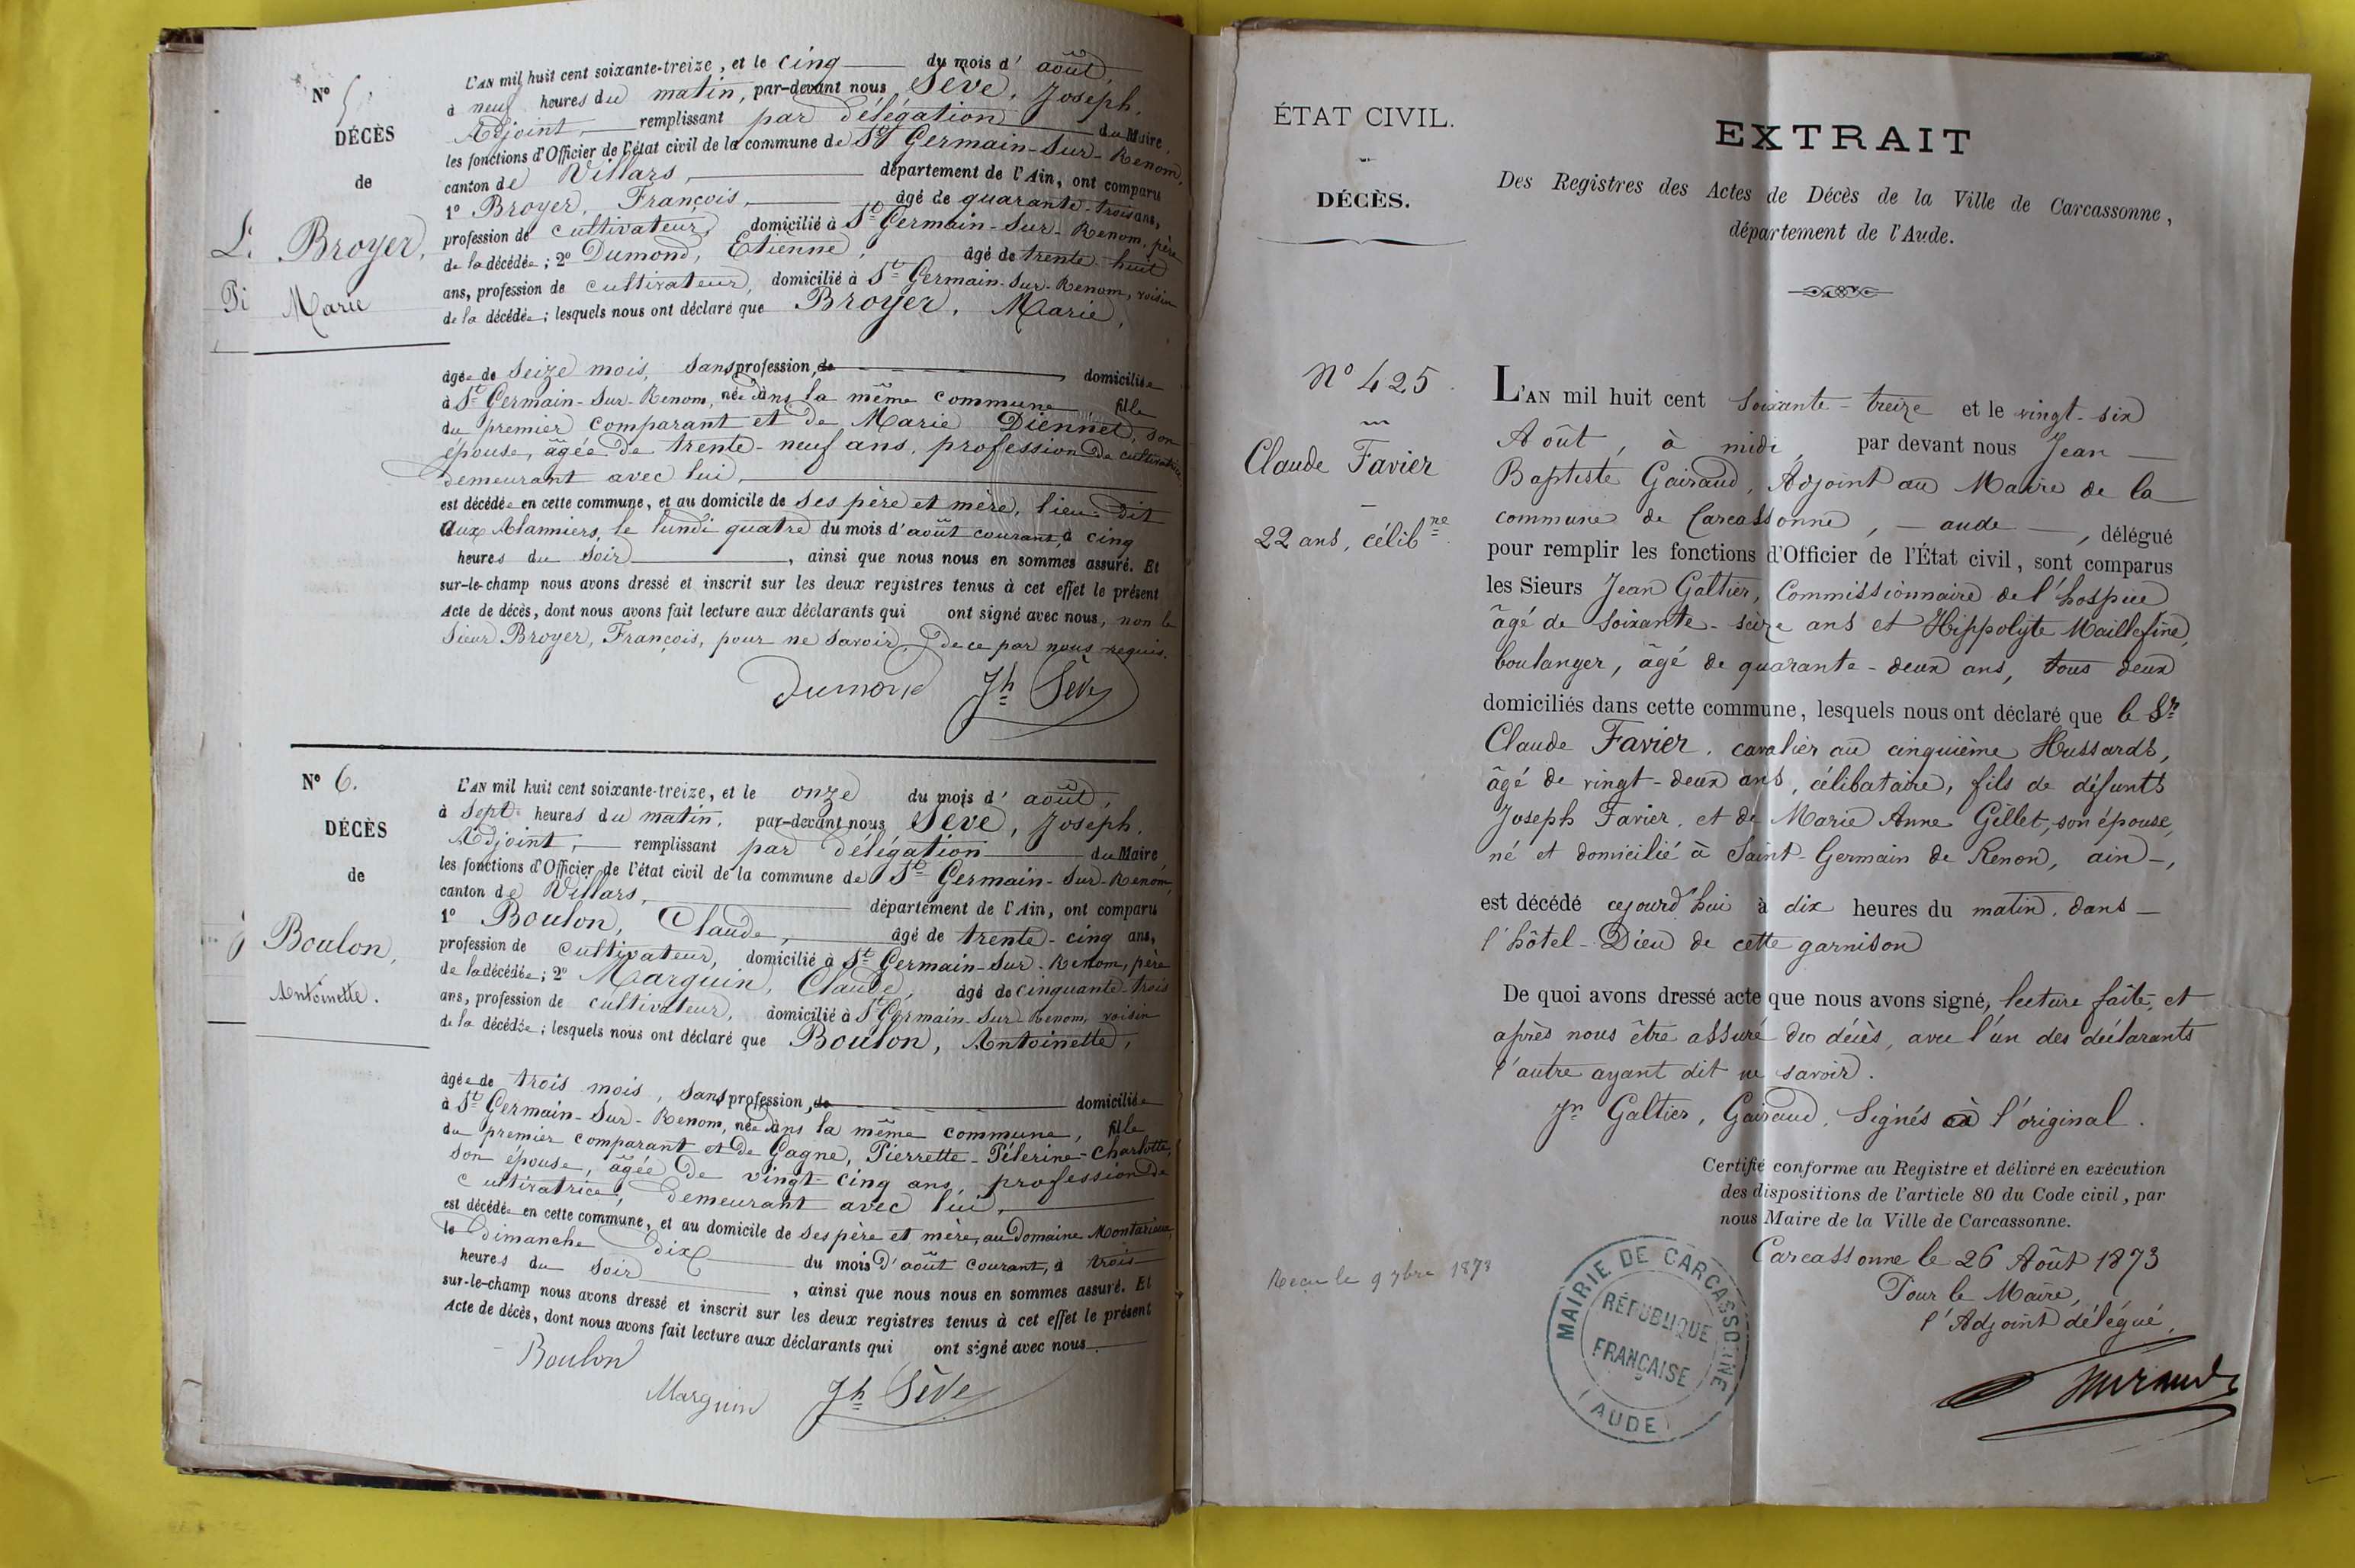 N° 5
DÉCÈS
de
Broyer,
Marie
L'AN mil huit cent soixante-treize, et le cinq du mois d'août,
à neuf heures du matin, par-devant nous Sève, Joseph,
Adjoint, remplissant par délégation du Maire,
les fonctions d'Officier de l'état civil de la commune de St Germain-sur-Renom,
canton de Villars, département de l'Ain, ont comparu
1° Broyer, François, âgé de quarante-trois ans,
profession de cultivateur, domicilié à St Germain-sur-Renom, père
de la décédée; 2° Dumond, Etienne, âgé de trente-huit
ans, profession de cultivateur, domicilié à St Germain-sur-Renom, voisin
de la décédée; lesquels nous ont déclaré que Broyer, Marie,
âgée de seize mois, sans profession, de domiciliée
à St Germain-sur-Renom, née dans la même commune, fille
du premier comparant et de Marie Diennet, son
épouse, âgée de trente-neuf ans, profession de cultivatrice
demeurant avec lui,
est décédée en cette commune, et au domicile de ses père et mère, lieu dit
aux Alamniers, le lundi quatre du mois d'août courant, à cinq
heures du soir, ainsi que nous nous en sommes assuré. Et
sur-le-champ nous avons dressé et inscrit sur les deux registres tenus à cet effet le présent
Acte de décès, dont nous avons fait lecture aux déclarants qui ont signé avec nous, non le
sieur Broyer, François, pour ne savoir, de ce par nous requis.
Dumond Jh Sève
N° 6.
DÉCÈS
de
Boulon,
Antoinette.
L'AN mil huit cent soixante-treize, et le onze du mois d'août,
à sept heures du matin, par-devant nous Sève, Joseph,
Adjoint, remplissant par délégation du Maire
les fonctions d'Officier de l'état civil de la commune de St Germain-sur-Renom,
canton de Villars, département de l'Ain, ont comparu
1° Boulon, Claude, âgé de trente-cinq ans,
profession de cultivateur, domicilié à St Germain-sur-Renom, père
de la décédée; 2° Marguin, Claude, âgé de cinquante-trois
ans, profession de cultivateur, domicilié à St Germain-sur-Renom, voisin
de la décédée; lesquels nous ont déclaré que Boulon, Antoinette,
âgée de trois mois, sans profession, de domiciliée
à St Germain-sur-Renom, née dans la même commune, fille
du premier comparant et de Gagne, Pierrette-Pélerine-Charlotte,
son épouse, âgée de vingt-cinq ans, profession de
cultivatrice, demeurant avec lui,
est décédée en cette commune, et au domicile de ses père et mère, au Domaine Montarieux,
le dimanche dix du mois d'août courant, à trois
heures du soir, ainsi que nous nous en sommes assuré. Et
sur-le-champ nous avons dressé et inscrit sur les deux registres tenus à cet effet le présent
Acte de décès, dont nous avons fait lecture aux déclarants qui ont signé avec nous.
Boulon
Marguin Jh Sève
ÉTAT CIVIL.
DÉCÈS.
N° 425
Claude Favier
22 ans, célibre
Reçu le 9 7bre 1873
EXTRAIT
Des Registres des Actes de Décès de la Ville de Carcassonne,
département de l'Aude.
L'AN mil huit cent soixante-treize et le vingt-six
Août, à midi, par devant nous Jean
Baptiste Gairaud, Adjoint au Maire de la
commune de Carcassonne, - aude -, délégué
pour remplir les fonctions d'Officier de l'État civil, sont comparus
les Sieurs Jean Galtier, Commissionnaire de l'hospice
âgé de soixante-seize ans et Hippolyte Maillefine,
boulanger, âgé de quarante-deux ans, tous deux
domiciliés dans cette commune, lesquels nous ont déclaré que le Sr
Claude Favier, cavalier au cinquième Hussards,
âgé de vingt-deux ans, célibataire, fils de défunts
Joseph Favier, et de Marie Anne Gillet, son épouse,
né et domicilié à Saint-Germain de Renon, ain -,
est décédé cejourd'hui à dix heures du matin, dans -
l'hôtel-Dieu de cette garnison
De quoi avons dressé acte que nous avons signé, lecture faite, et
après nous être assuré du décès, avec l'un des déclarants
l'autre ayant dit ne savoir.
Jn Galtier, Gairaud, Signés à l'original.
Certifié conforme au Registre et délivré en exécution
des dispositions de l'article 80 du Code civil, par
nous Maire de la Ville de Carcassonne.
Carcassonne le 26 Août 1873
Pour le Maire,
l'Adjoint délégué,
Gairaud
MAIRIE DE CARCASSONNE
RÉPUBLIQUE
FRANÇAISE
(AUDE)